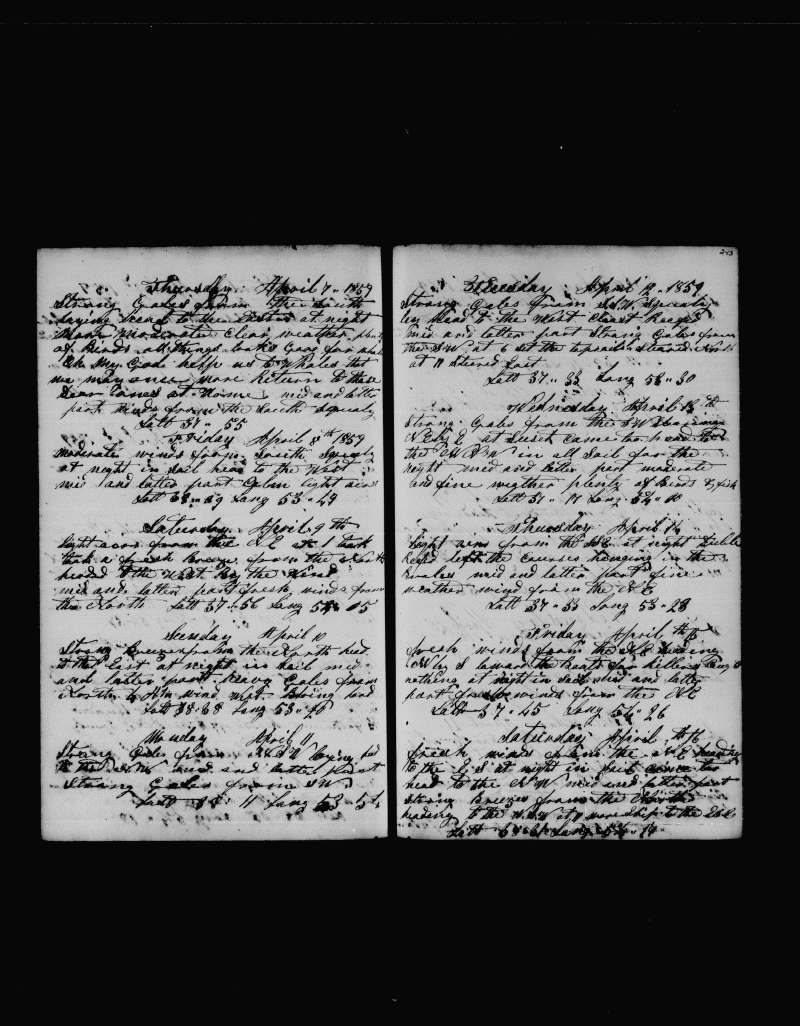 Thursday April 7 - 1859
Strong Gales from the South
laying head to the Easter at night
more moderate clear weather plenty
of Birds all things looks Good for whales
Oh My God help us to Whales that
we may once more Return to these
Dear ones at Home mid and latter
part winds from the South squaly
Latt 37 - 55
Friday April 8th 1859
moderate winds from South Squaly
at night in sail head to the West
mid and latter part Calm light airs
Latt 38 - 09 Long 53 - 49
Saturday April 9th
light airs from the NE at 1 took
took a fresh breeze from the North
headed to the West by the Wind
mid and latter part fresh winds from
the North Latt 37 - 56 Long 54 - 05
Sunday April 10
Strong Breezes from the North head
to the East at night in sail mid
and latter part heavy Gales from
North wind
Latt 38 - 38 Long 53 -
Monday April 11
Strong Gales from laying head
to the NW mid and latter part
Strong Gales from SW
Latt 38 - 11 Long 53 - 54
243
Tuesday April 12 - 1859
Strong Gales from Squaly
laying Head to the West
mid and latter part Strong Gales from
the SW at 6 set the topsails Steared North
at 11 Steared East
Latt 37 - 33 Long 53 - 30
Wednesday April 13th
Strong Gales from the SW
N E by E at Sunset came too head to
the in all sail for the
night mid and latter part moderate
and fine weather plenty of Birds & fish
Latt 37 - 11 Long 54 - 00
Thursday April 14
light airs from the NE at night Double
Reefed left the Courses hanging in the
Brales mid and latter part fine
weather wind from the NE
Latt 37 - 33 Long 53 - 28
Friday April 15
fresh winds from the NE heading
lower the boats for killing
nothing at night in sail mid and latter
part fresh winds from the NE
Latt 37 - 45 Long 54 - 26
Saturday April 16
fresh winds from the NE heading
to the E S at night in sail came too
head to the N W mid and latter part
Strong breezes from the North
heading to the Ship to the
Latt Long